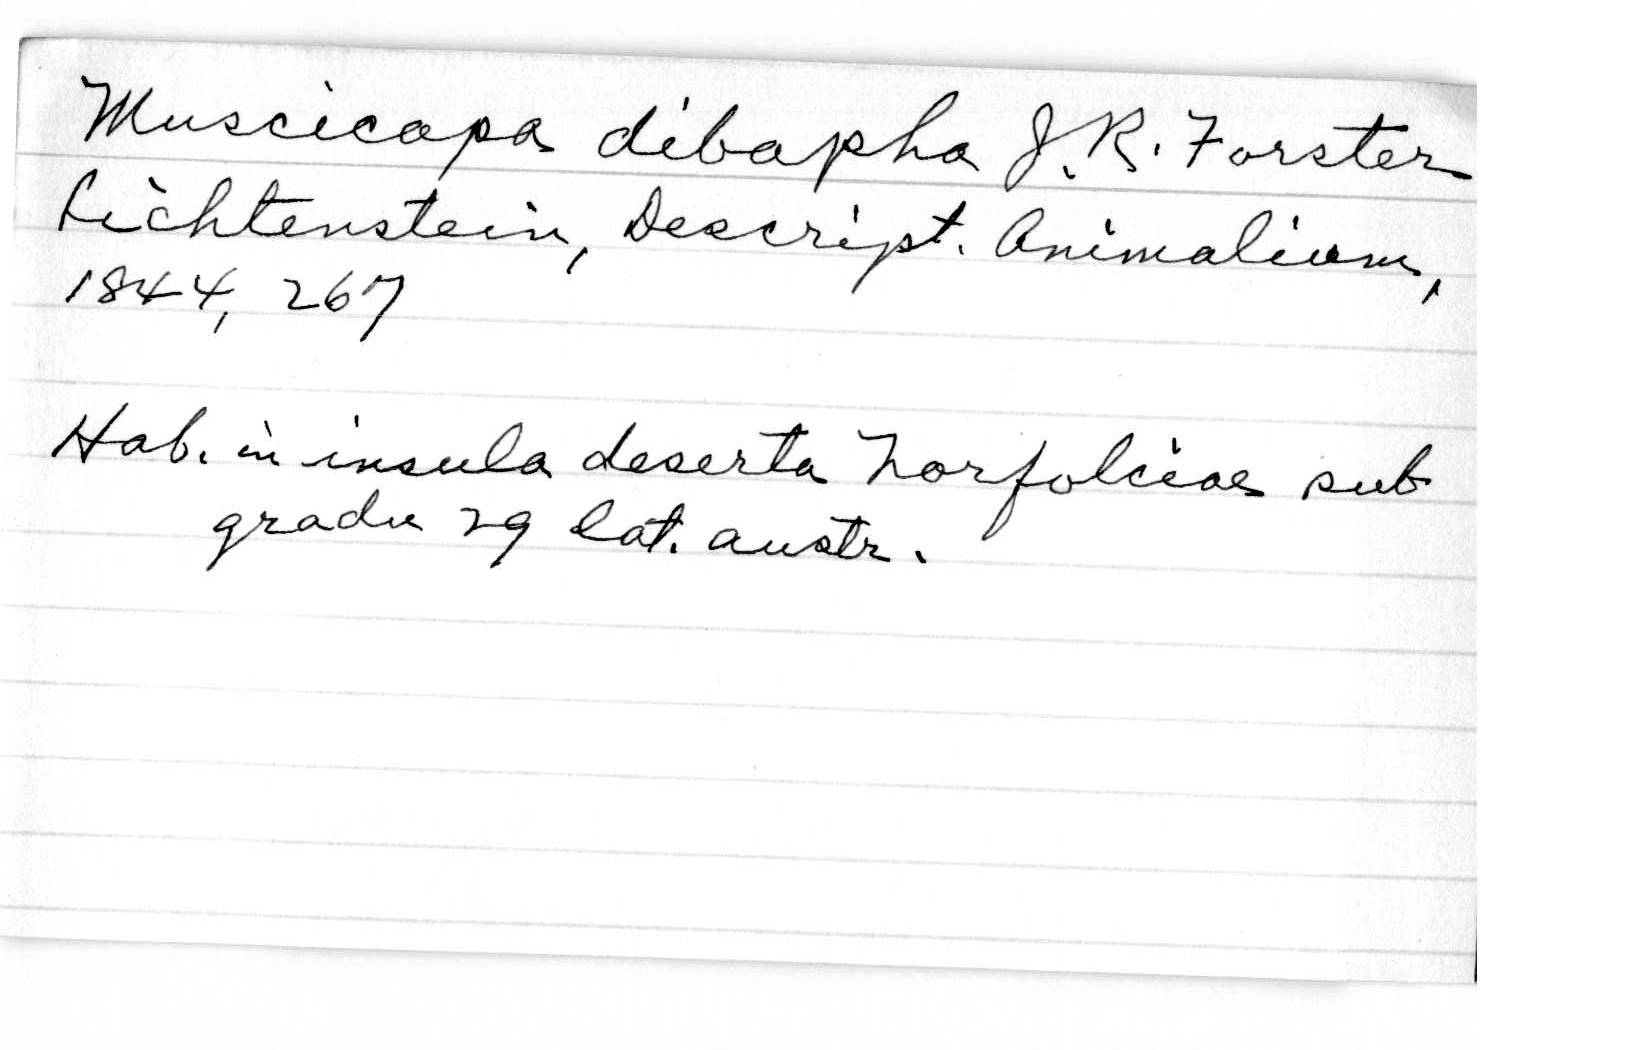 Muscicapa dibapha J. R. Forster
Lichtenstein, Descript. Animalium,
1844, 267
Hab. in insula deserta Norfolciae sub
gradu 29 lat. austr.